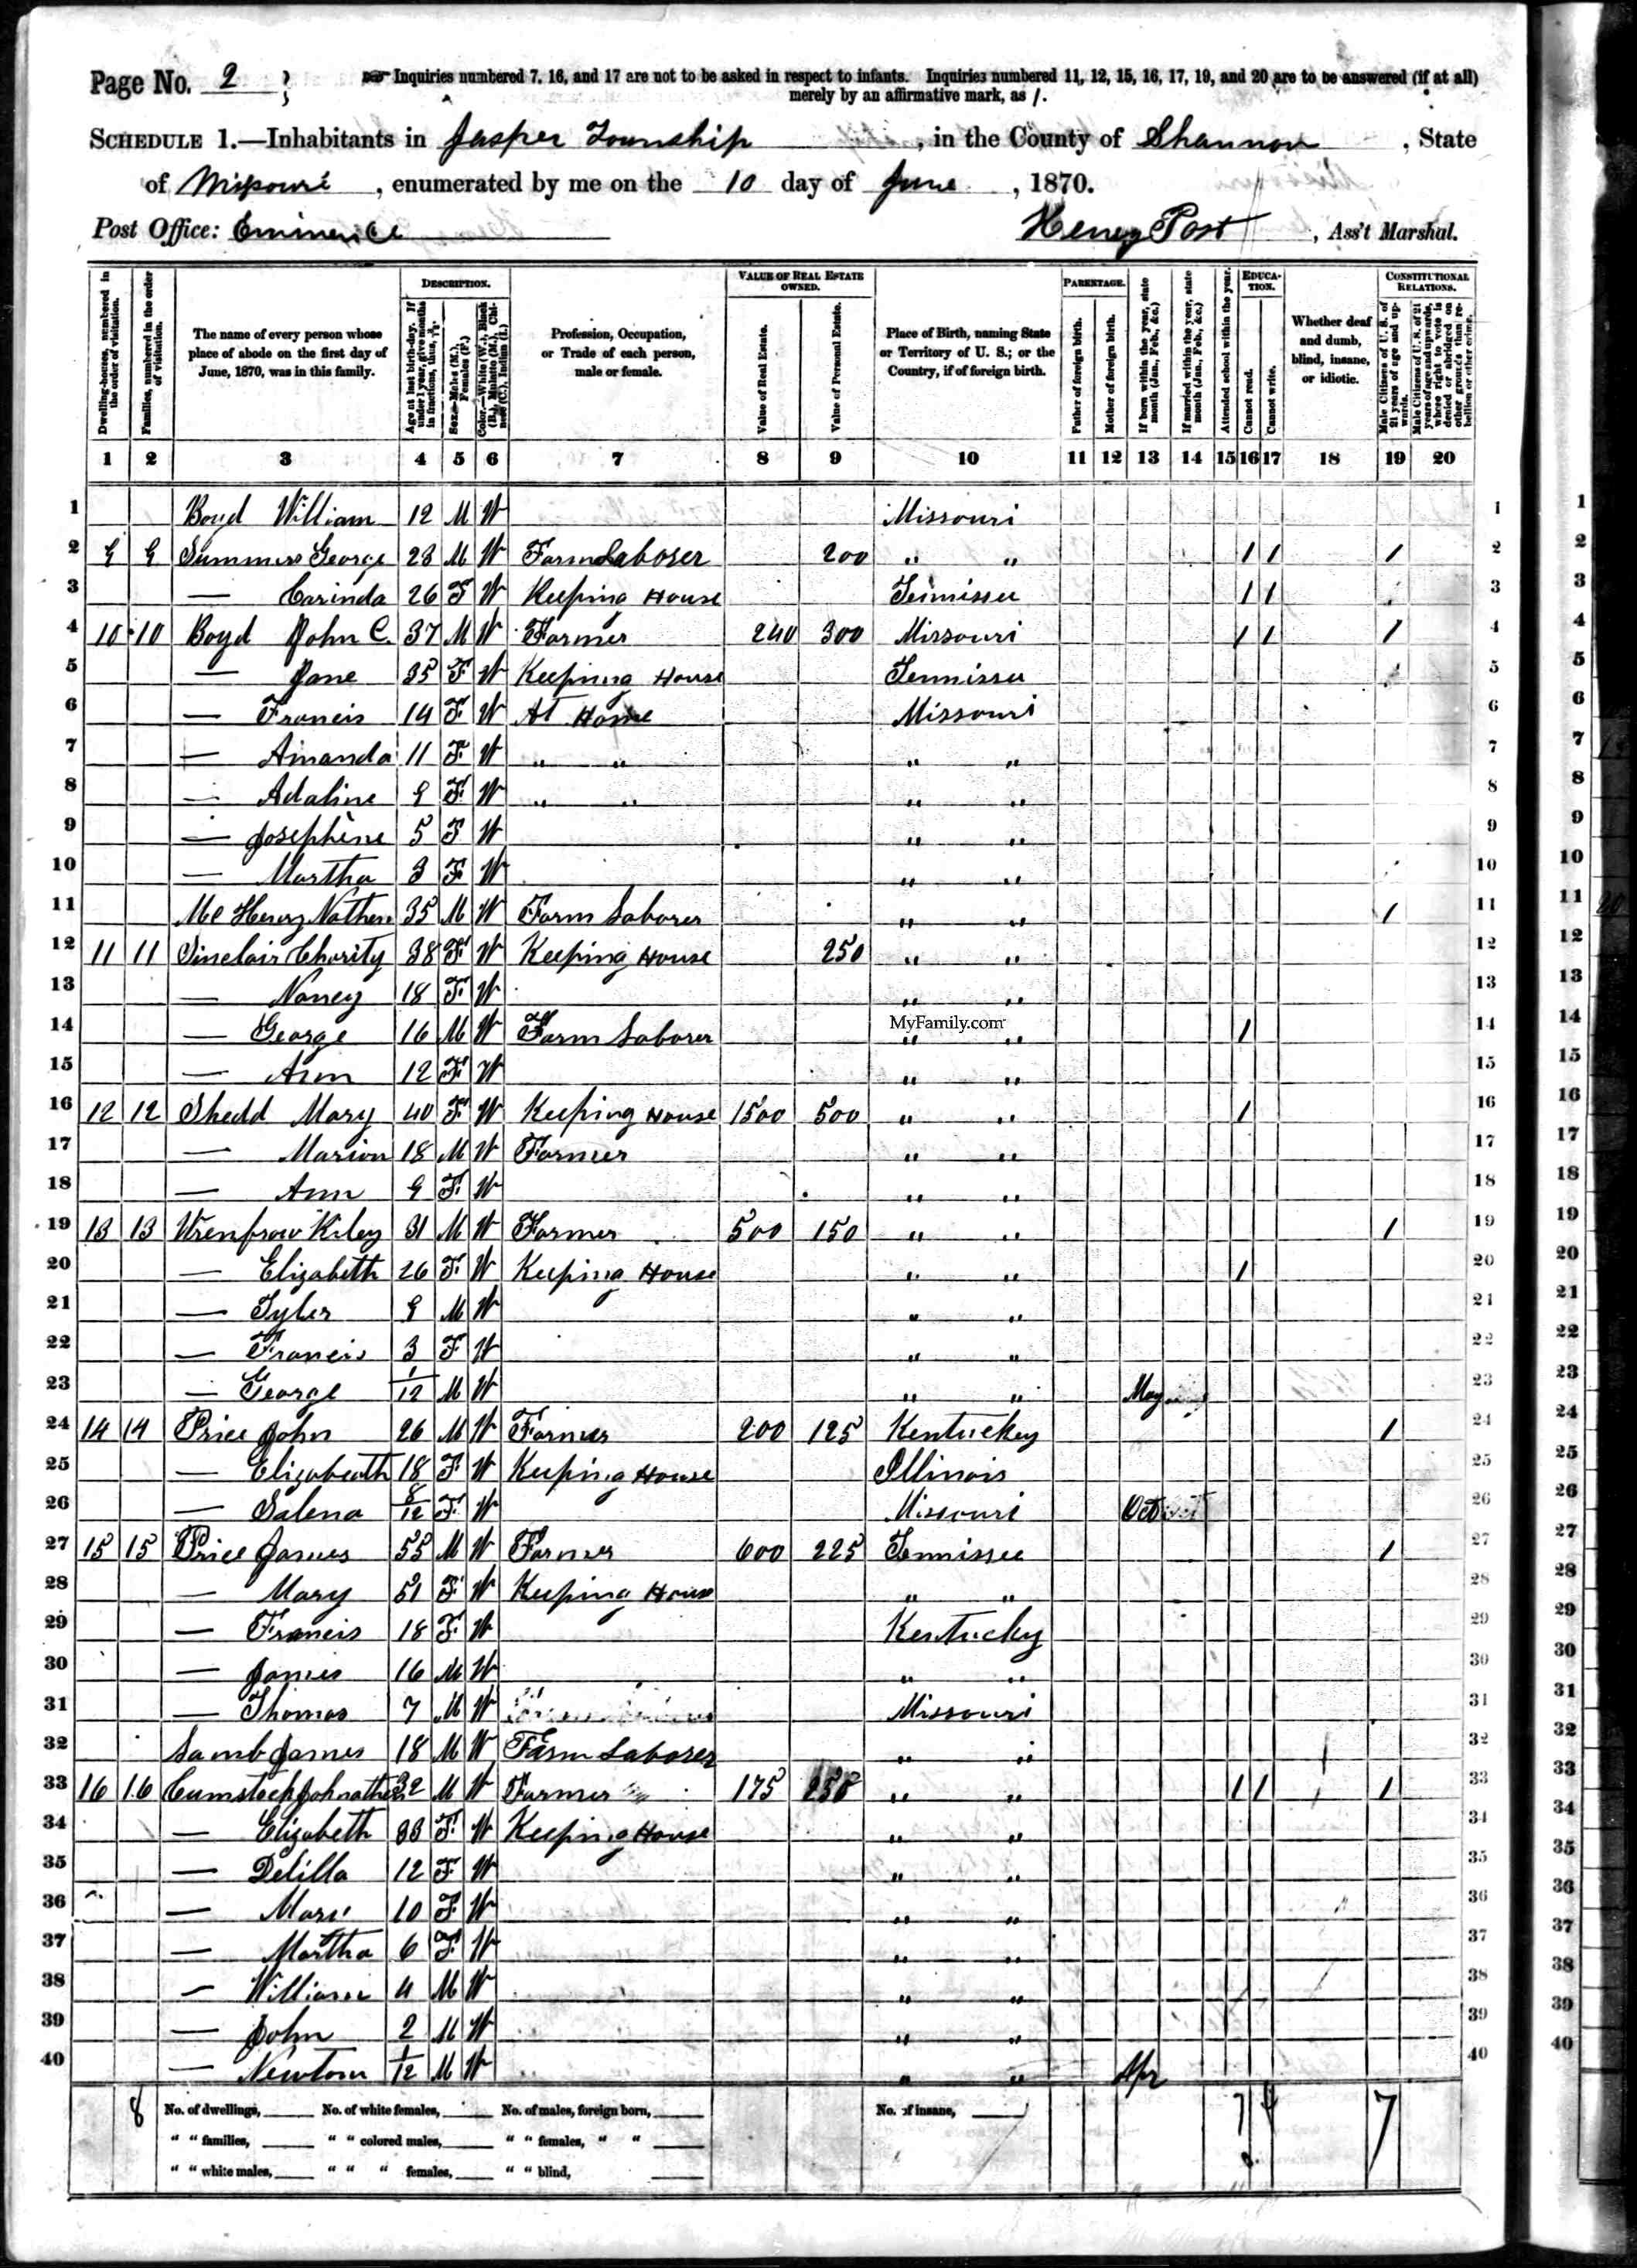 Page No. 2
Inquiries numbered 7, 16, and 17 are not to be asked in respect to infants. Inquiries numbered 11, 12, 15, 16, 17, 19, and 20 are to be answered (if at all)
merely by an affirmative mark, as /.
SCHEDULE 1.—Inhabitants in Jasper Township, in the County of Shannon, State
of Missouri, enumerated by me on the 10 day of June, 1870.
Post Office: Eminence Henry Post, Ass't Marshal.
Dwelling-houses, numbered in the order of visitation.
Families, numbered in the order of visitation.
The name of every person whose place of abode on the first day of June, 1870, was in this family.
DESCRIPTION.
Age at last birth-day. If under 1 year, give months in fractions, thus,
Sex.—Males (M.), Females (F.)
Color.—White (W.), Black (B.), Mulatto (M.), Chinese (C.), Indian (I.)
Profession, Occupation, or Trade of each person, male or female.
VALUE OF REAL ESTATE OWNED.
Value of Real Estate.
Value of Personal Estate.
Place of Birth, naming State or Territory of U. S.; or the Country, if of foreign birth.
PARENTAGE.
Father of foreign birth.
Mother of foreign birth.
If born within the year, state month (Jan., Feb., &c.)
If married within the year, state month (Jan., Feb., &c.)
Attended school within the year.
EDUCATION.
Cannot read.
Cannot write.
Whether deaf and dumb, blind, insane, or idiotic.
CONSTITUTIONAL RELATIONS.
Male Citizens of U. S. of 21 years of age and upwards.
Male Citizens of U. S. of 21 years of age and upwards, whose right to vote is denied or abridged on other grounds than rebellion or other crime.
1 2 3 4 5 6 7 8 9 10 11 12 13 14 15 16 17 18 19 20
1 Boyd William 12 M W Missouri 1
2 9 9 Summers George 23 M W Farm Laborer 200 " " / / / 2
3 — Carinda 26 F W Keeping House Tennissee / / 3
4 10 10 Boyd John C. 37 M W Farmer 240 300 Missouri / / / 4
5 — Jane 35 F W Keeping House Tennissee 5
6 — Francis 14 F W At Home Missouri 6
7 — Amanda 11 F W " " " " 7
8 — Adaline 9 F W " " " " 8
9 — Josephine 5 F W " " 9
10 — Martha 3 F W " " 10
11 Mc Henry Nathen 35 M W Farm Laborer " " / 11
12 11 11 Sinclair Charity 38 F W Keeping House 250 " " 12
13 — Nancy 18 F W " " 13
MyFamily.com
14 — George 16 M W Farm Laborer " " / 14
15 — Ann 12 F W " " 15
16 12 12 Shedd Mary 40 F W Keeping House 1500 500 " " / 16
17 — Marion 18 M W Farmer " " 17
18 — Ann 9 F W " " 18
19 13 13 Wrenfrow Kiley 31 M W Farmer 500 150 " " / 19
20 — Elizabeth 26 F W Keeping House " " / 20
21 — Tyler 9 M W " " 21
22 — Francis 3 F W " " 22
23 — George 1/12 M W " " May 23
24 14 14 Price John 26 M W Farmer 200 125 Kentuckey / 24
25 — Elizabeath 18 F W Keeping House Illinois 25
26 — Salena 8/12 F W Missouri Oct 26
27 15 15 Price James 55 M W Farmer 600 225 Tennissee / 27
28 — Mary 51 F W Keeping House " " 28
29 — Francis 18 F W Kentucky 29
30 — James 16 M W " " 30
31 — Thomas 7 M W Missouri 31
32 Lamb James 18 M W Farm Laborer " " 32
33 16 16 Cumstock Johnathen 32 M W Farmer 175 250 " " / / / 33
34 — Elizabeth 33 F W Keeping House " " 34
35 — Delilla 12 F W " " 35
36 — Mary 10 F W " " 36
37 — Martha 6 F W " " 37
38 — William 4 M W " " 38
39 — John 2 M W " " 39
40 — Newton 1/12 M W " " Apr 40
8 No. of dwellings, No. of white females, No. of males, foreign born, No. of insane, 7 4 7
" " families, " " colored males, " " females, " "
" " white males, " " " females, " " blind,